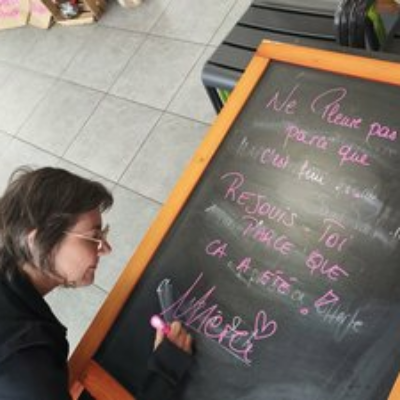 Ne Pleure pas
parce que
c'est fini
REJOUIS-TOI
PARCE QUE
CA A ÉTÉ!
Merci